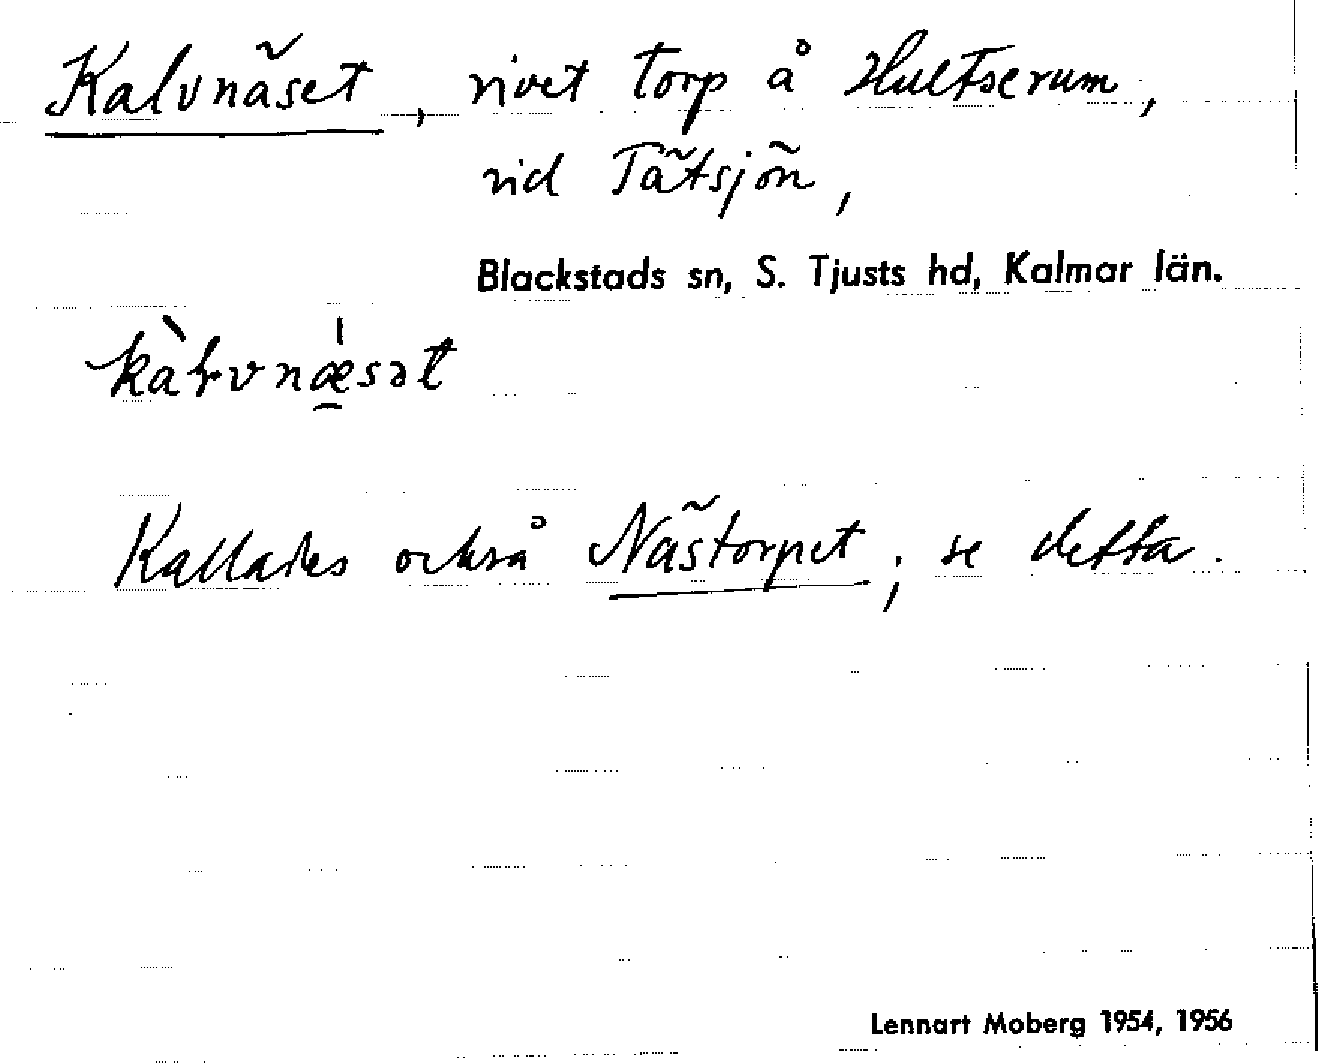 Kalvnäset, rivet torp å Hultserum,
vid Tätsjön,
Blackstads sn, S. Tjusts hd, Kalmar län.
kàɫvnǽ̠sət
Kallades också Nästorpet; se detta.
Lennart Moberg 1954, 1956